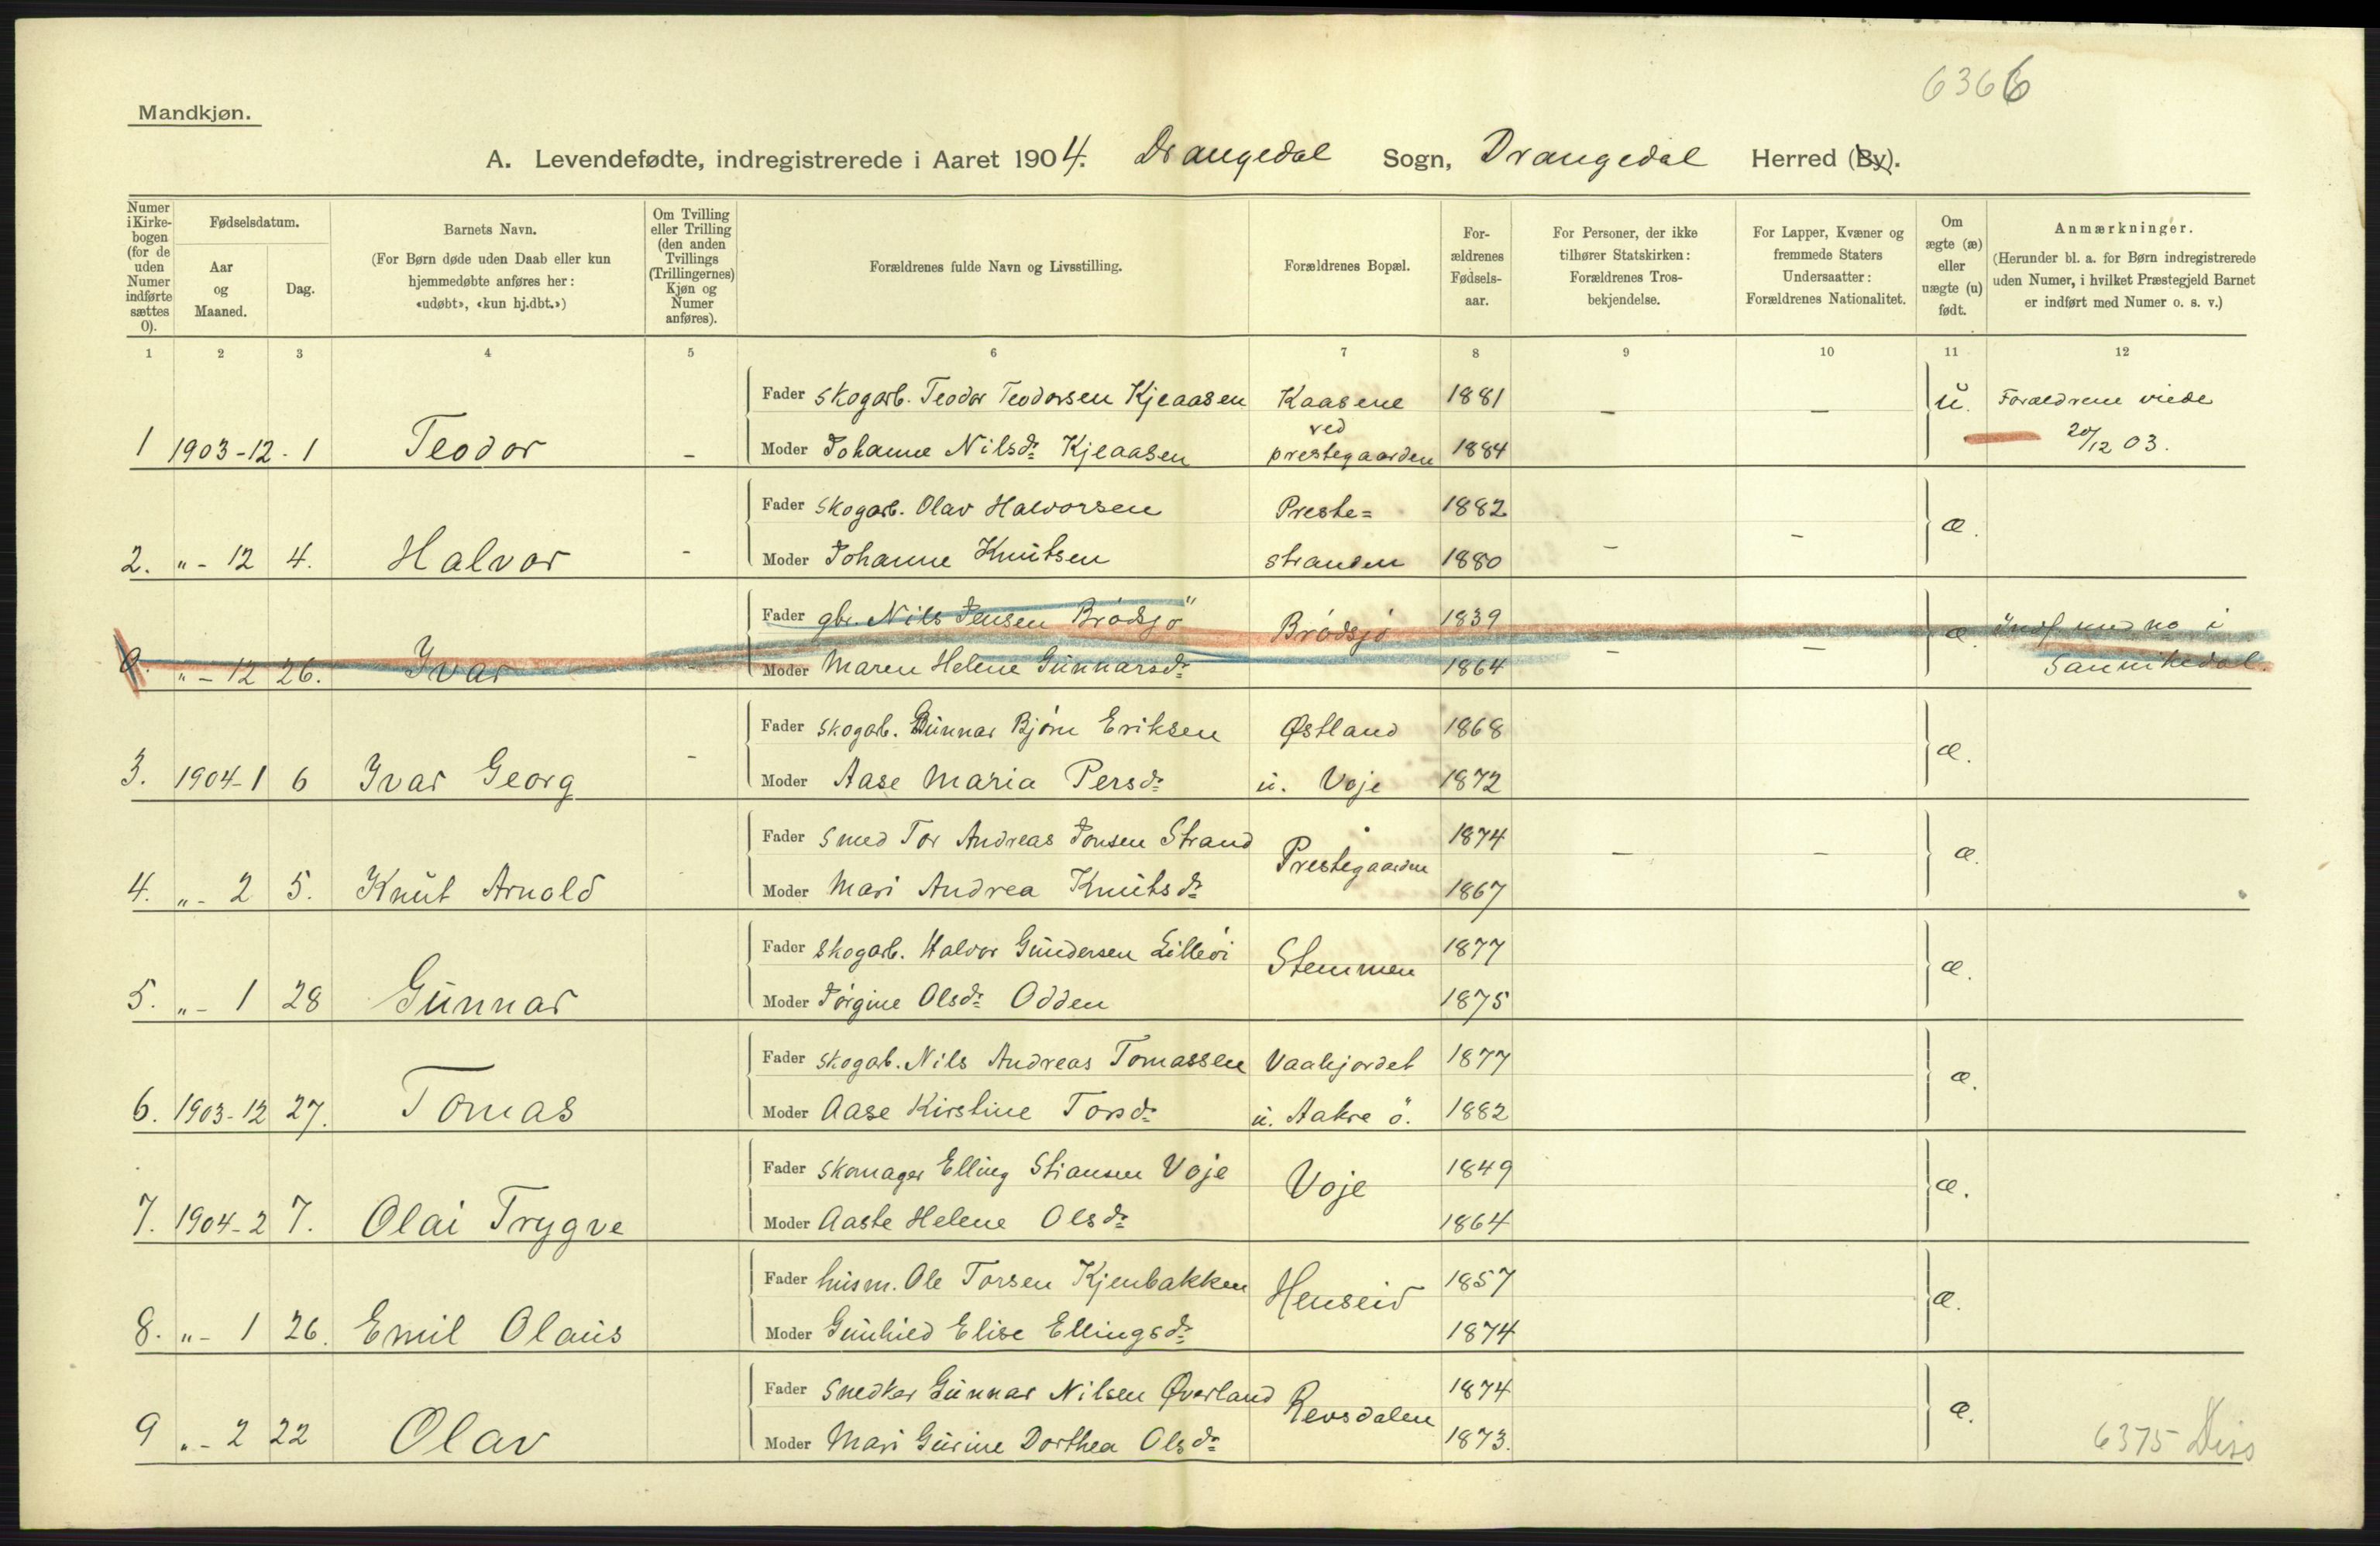 6366
Mandkjøn.
A. Levendefødte, indregistrerede i Aaret 1904. Drangedal Sogn, Drangedal Herred (By).
Numer i Kirkebogen (for de uden Numer indførte sættes 0).
Fødselsdatum.
Aar og Maaned.
Dag.
Barnets Navn.
(For Børn døde uden Daab eller kun hjemmedøbte anføres her: «udøbt», «kun hj.dbt.»)
Om Tvilling eller Trilling (den anden Tvillings (Trillingernes) Kjøn og Numer anføres).
Forældrenes fulde Navn og Livsstilling.
Forældrenes Bopæl.
Forældrenes Fødselsaar.
For Personer, der ikke tilhører Statskirken: Forældrenes Trosbekjendelse.
For Lapper, Kvæner og fremmede Staters Undersaatter: Forældrenes Nationalitet.
Om ægte (æ) eller uægte (u) født.
Anmærkninger.
(Herunder bl. a. for Børn indregistrerede uden Numer, i hvilket Præstegjeld Barnet er indført med Numer o. s. v.)
1 2 3 4 5 6 7 8 9 10 11 12
Fader Skogarb. Teodor Teodorsen Kjeaasen Kaasene 1881 – – u. Forældrene viede
1 1903-12-1 Teodor – Moder Johanne Nilsd. Kjeaasen ved prestegaarden 1884 20/12 03.
Fader Skogarb. Olav Halvorsen Preste= 1882 æ.
2. "- 12 4. Halvor - Moder Johanne Knutsen stranden 1880 – –
Fader gbr. Nils Jensen Brödsjö Brödsjö 1839 æ. indf med no i
0. "- 12 26. Ivar - Moder Maren Helene Gunnarsd. 1864 – – Sannikedal.
Fader Skogarb. Gunnar Bjørn Eriksen Østland 1868 æ.
3. 1904-1 6 Ivar Georg - Moder Aase Maria Persd. u. Voje 1872
Fader Smed Tor Andreas Jonsen Strand Prestegaarden 1874 – – æ.
4. "- 2 5. Knut Arnold Moder Mari Andrea Knutsd. 1867
Fader Skogarb. Halvor Gundersen Lilleöi Stemmen 1877 æ.
5. "- 1 28 Gunnar Moder Jörgine Olsd. Odden 1875
Fader Skogarb. Nils Andreas Tomassen Vaahjordet 1877 æ.
6. 1903-12 27. Tomas Moder Aase Kirstine Torsd. u. Aakre ö. 1882
Fader Skomager Elling Stiansen Voje Voje 1849 æ.
7. 1904-2 7. Olai Trygve Moder Aaste Helene Olsd. 1864
Fader husm. Ole Torsen Kjenbakken Henseid 1857 æ.
8. "- 1 26. Emil Olaus Moder Gunhild Elise Ellingsd. 1874
Fader Snedker Gunnar Nilsen Øverland Revsdalen 1874 æ.
9 "- 2 22 Olav Moder Mari Gurine Dorthea Olsd. 1873.
6375